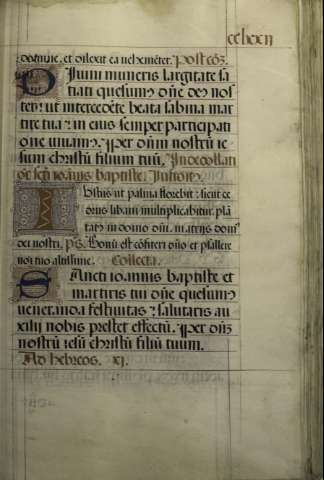 cclxxii
domine. et dilexit ea vehemēter. Postcō͞z.
Diuini muneris largitate sa
tiati quesumus dn̄e deus nos
ter: ut intercedēte beata sabina mar
tire tua ⁊ in eius semper participati
one uiuamus. Per dn̄m nostrū ie
sum christū filium tuū. In decollati
one sc̄ti ioānis baptiste. Introitus.
Iustus ut palma florebit: sicut ce
drus libani multiplicabitur. plā
tatus in domo dn̄i. in atriis domus
dei nostri. ps. Bonū est cōfiteri dn̄o et psallere
nomino altissime. Collecta.
Sancti ioannis baptiste et
martiris tui dn̄e quesumus
ueneranda festiuitas ⁊ salutaris au
xilij nobis prestet effectū. Per dn̄m
nostrū iesū christū filiū tuum.
Ad hebreos. xi.